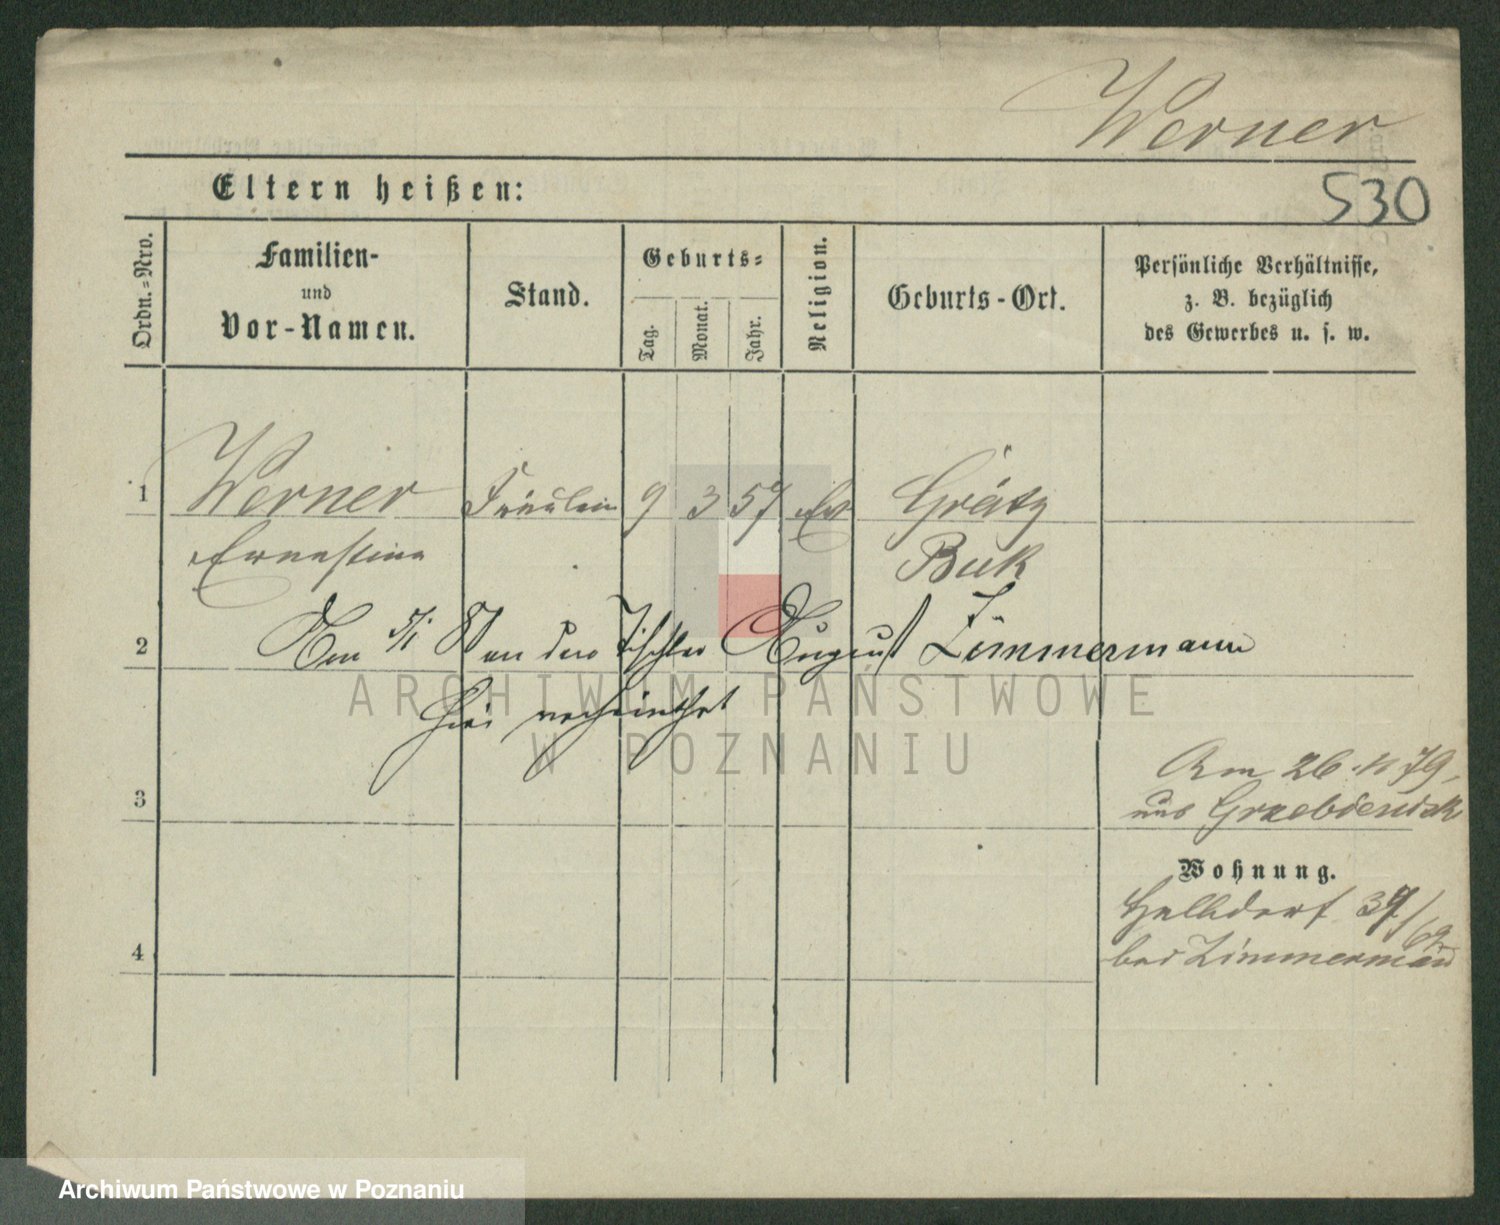 Werner
Eltern heißen:
530
Ordn.-Nro.
Familien-
und
Vor-Namen.
Stand.
Geburts-
Tag.
Monat.
Jahr.
Religion.
Geburts-Ort.
Persönliche Verhältnisse,
z. B. bezüglich
des Gewerbes u. s. w.
1 Werner Fräulein 9 3 57 Ev Grätz
Ernestine Buk
2 Am 5/1 87 an den Tischler August Zimmermann
hier verheirathet
ARCHIWUM PAŃSTWOWE
W POZNANIU
Am 26. 11 79.
aus
3
Wohnung.
Halbdorf 39/
69
4
bei Zimmermann
Archiwum Państwowe w Poznaniu